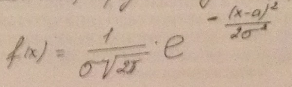 f(x) = \frac{1}{σ\sqrt{2π}} · e^{-\frac{(x-a)^2}{2σ^2}}